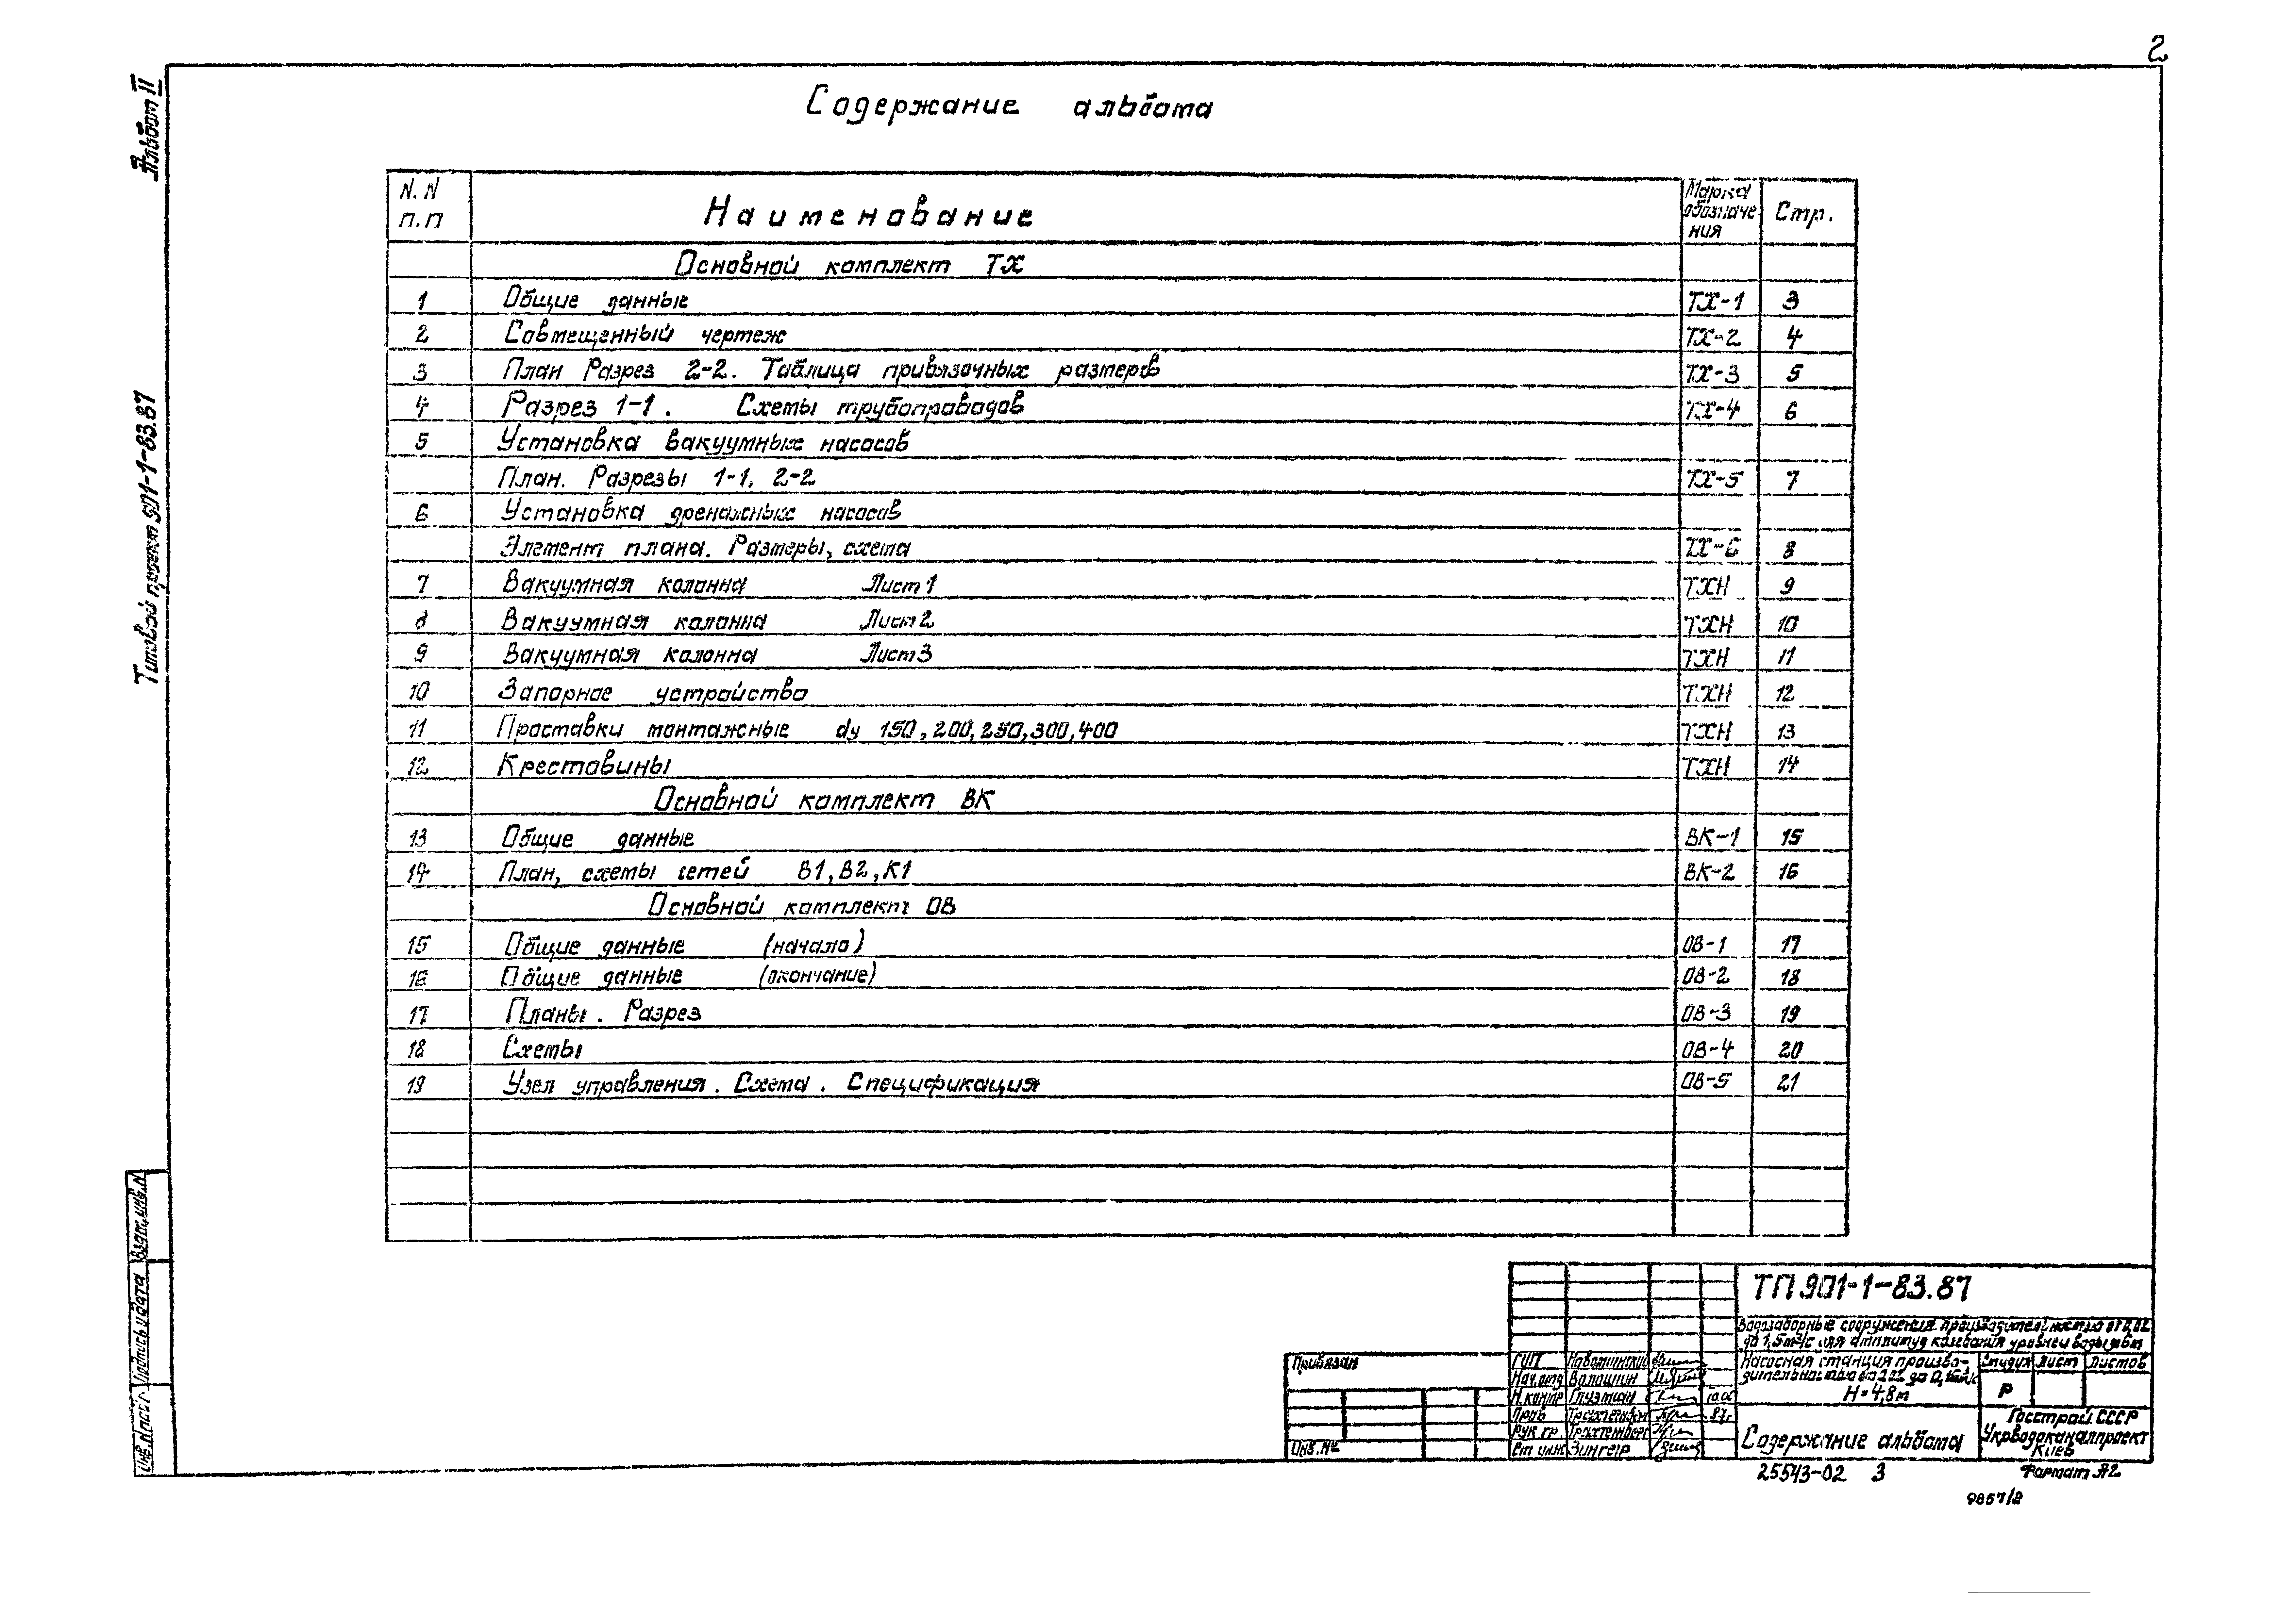 2
Альбом II
Типовой проект 901-1-83.87
Содержание альбома
N.N п.п Наименование Марка обозначения Стр.
Основной комплект ТХ
1 Общие данные ТХ-1 3
2 Совмещенный чертеж ТХ-2 4
3 План Разрез 2-2. Таблица привязочных размеров ТХ-3 5
4 Разрез 1-1. Схемы трубопроводов ТХ-4 6
5 Установка вакуумных насосов
План. Разрезы 1-1, 2-2 ТХ-5 7
6 Установка дренажных насосов
Элемент плана. Размеры, схема ТХ-6 8
7 Вакуумная колонна Лист 1 ТХН 9
8 Вакуумная колонна Лист 2 ТХН 10
9 Вакуумная колонна Лист 3 ТХН 11
10 Запорное устройство ТХН 12
11 Проставки монтажные dу 150, 200, 250, 300, 400 ТХН 13
12 Крестовины ТХН 14
Основной комплект ВК
13 Общие данные ВК-1 15
14 План, схемы сетей В1, В2, К1 ВК-2 16
Основной комплект ОВ
15 Общие данные (начало) ОВ-1 17
16 Общие данные (окончание) ОВ-2 18
17 Планы. Разрез ОВ-3 19
18 Схемы ОВ-4 20
19 Узел управления. Схема. Спецификация ОВ-5 21
Взам.инв.N
Подпись и дата
Инв.N подл.
ТП 901-1-83.87
Водозаборные сооружения производительностью от 0,02
до 1,5 м3/с для амплитуд колебания уровней воды
Насосная станция произво-
дительностью от до
H=4,8м
Стадия Лист Листов
Р
Привязан
Инв.№
ГИП
Нач.отд Волошин
Н.контр Глузман
Пров Трахтенберг 87г.
Рук гр. Трахтенберг
Ст инж Зингер
Содержание альбома
Госстрой СССР
Укрводоканалпроект
Киев
25543-02 3
Формат А2
9857/2